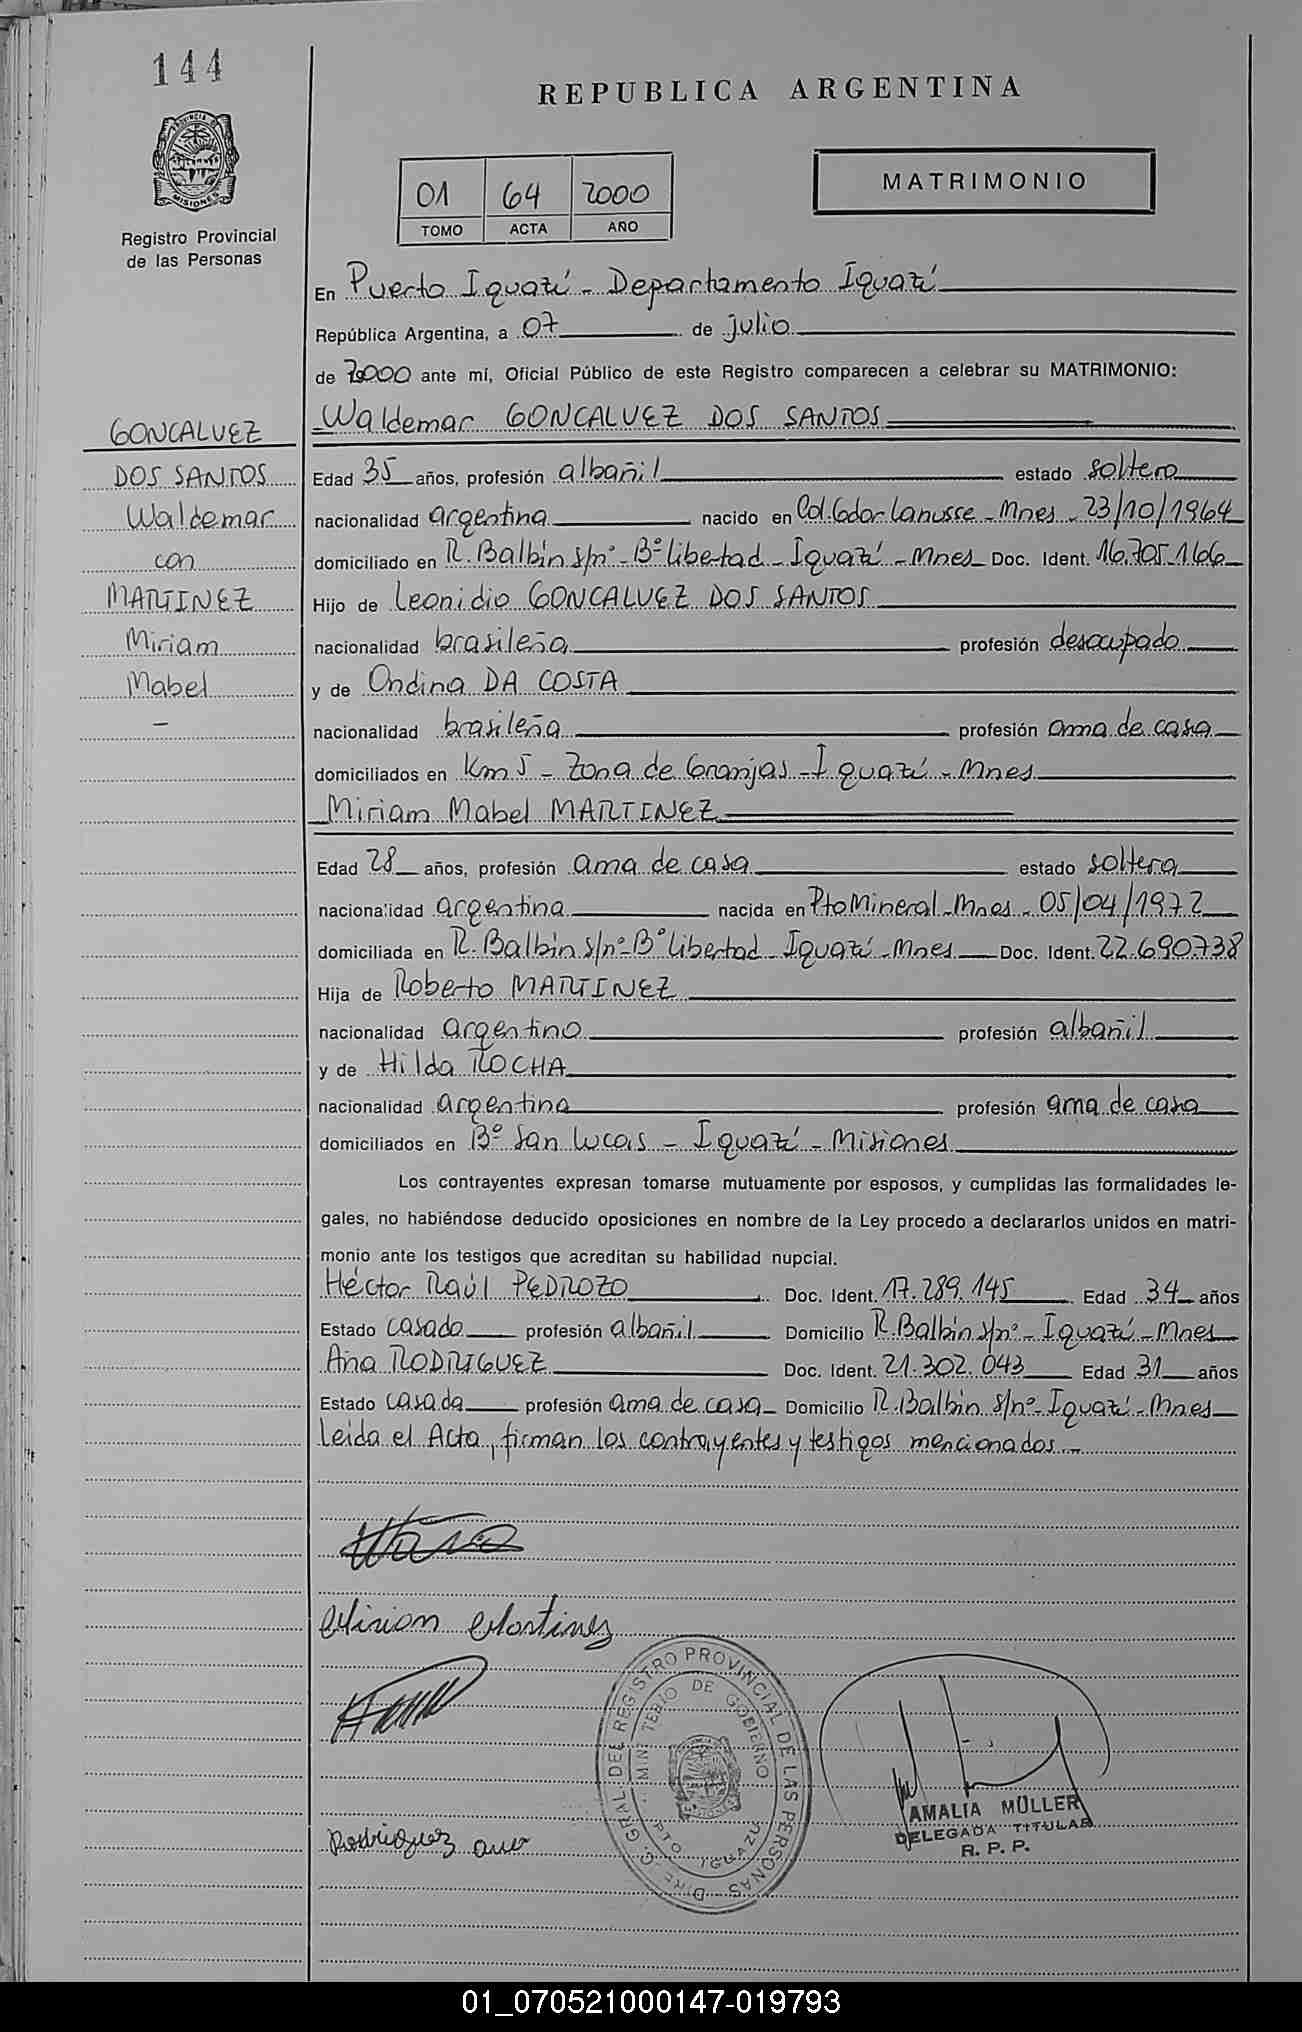 144
REPUBLICA ARGENTINA
PROVINCIA DE
MISIONES
Registro Provincial
de las Personas
01 64 2000
TOMO ACTA AÑO
MATRIMONIO
En Puerto Iguazú - Departamento Iguazú
República Argentina, a 07 de julio
de 2000 ante mí, Oficial Público de este Registro comparecen a celebrar su MATRIMONIO:
Waldemar GONCALVEZ DOS SANTOS
GONCALVEZ
DOS SANTOS
Waldemar
con
MARTINEZ
Miriam
Mabel
-
Edad 35 años, profesión albañil estado soltero
nacionalidad argentina nacido en Col. Gdor Lanusse - Mnes - 23/10/1964
domiciliado en R. Balbín s/nº - Bº libertad - Iguazú - Mnes Doc. Ident. 16.705.166
Hijo de Leonidio GONCALVEZ DOS SANTOS
nacionalidad brasileña profesión desocupado
y de Ondina DA COSTA
nacionalidad brasileña profesión ama de casa
domiciliados en Km 5 - Zona de Granjas - Iguazú - Mnes
Miriam Mabel MARTINEZ
Edad 28 años, profesión ama de casa estado soltera
nacionalidad argentina nacida en Pto Mineral - Mnes - 05/04/1972
domiciliada en R. Balbín s/nº - Bº libertad - Iguazú - Mnes Doc. Ident. 22.690.738
Hija de Roberto MARTINEZ
nacionalidad argentino profesión albañil
y de Hilda ROCHA
nacionalidad argentina profesión ama de casa
domiciliados en Bº San Lucas - Iguazú - Misiones
Los contrayentes expresan tomarse mutuamente por esposos, y cumplidas las formalidades le-
gales, no habiéndose deducido oposiciones en nombre de la Ley procedo a declararlos unidos en matri-
monio ante los testigos que acreditan su habilidad nupcial.
Héctor Raúl PEDROZO Doc. Ident. 17.289.145 Edad 34 años
Estado casado profesión albañil Domicilio R. Balbín s/nº - Iguazú - Mnes
Ana RODRIGUEZ Doc. Ident. 21.302.043 Edad 31 años
Estado casada profesión ama de casa Domicilio R. Balbín s/nº - Iguazú - Mnes
Leída el Acta, firman los contrayentes y testigos mencionados -
Miriam Martinez
Rodriguez ana
DIRE. GRAL DEL REGISTRO PROVINCIAL DE LAS PERSONAS
MINISTERIO DE GOBIERNO
PTO. IGUAZU
AMALIA MÜLLER
DELEGADA TITULAR
R. P. P.
01_070521000147-019793